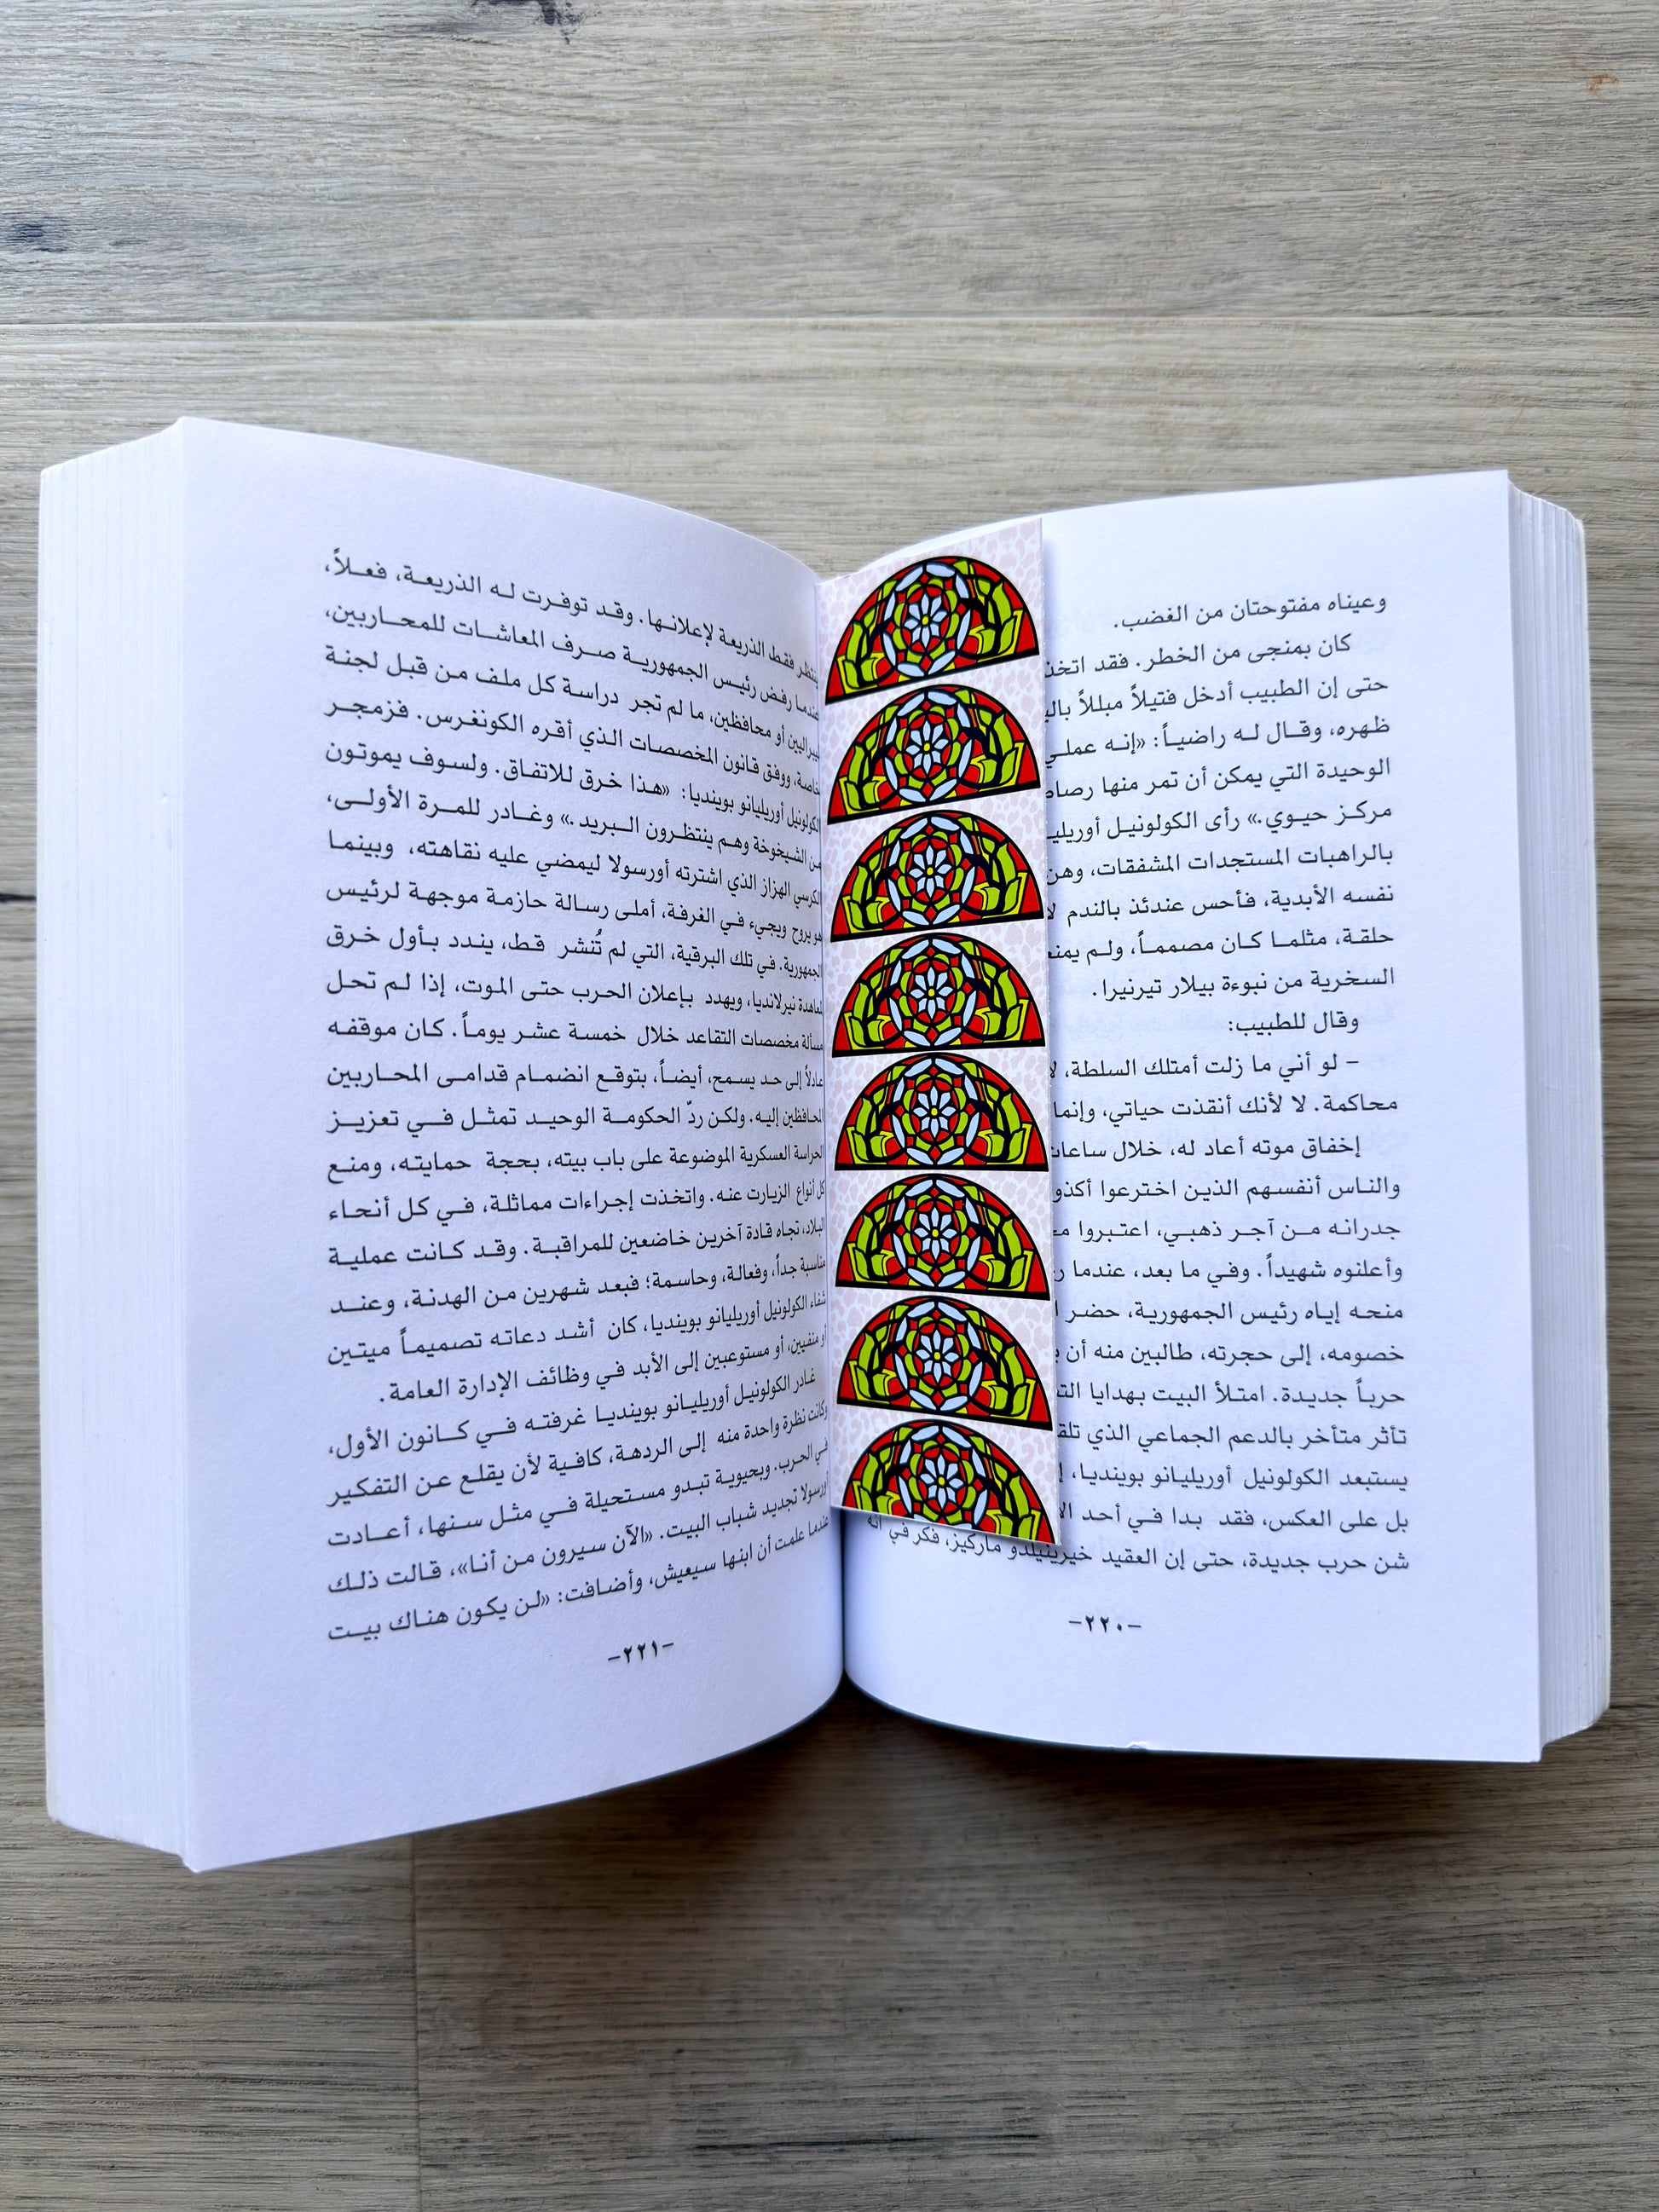 وعيناه مفتوحتان من الغضب.
كان بمنجى من الخطر. فقد اتخذ
حتى إن الطبيب أدخل فتيلاً مبللاً
ظهره، وقال له راضياً: «إنه عملي
الوحيدة التي يمكن أن تمر منها
مركز حيوي.» رأى الكولونيل
بالراهبات المستجدات المشفقات، وهن
نفسه الأبدية، فأحس عندئذ بالندم
حلقة، مثلما كان مصمماً، ولم
السخرية من نبوءة بيلار تيرنيرا.
وقال للطبيب:
– لو أني ما زلت أمتلك السلطة،
محاكمة. لا لأنك أنقذت حياتي، وإنما
إخفاق موته أعاد له، خلال
والناس أنفسهم الذين اخترعوا
جدرانه من آجر ذهبي، اعتبروا
وأعلنوه شهيداً. وفي ما بعد، عندما
منحه إياه رئيس الجمهورية، حضر
خصومه، إلى حجرته، طالبين منه أن
حرباً جديدة. امتلأ البيت بهدايا
تأثر متأخر بالدعم الجماعي الذي
يستبعد الكولونيل أوريليانو بوينديا،
بل على العكس، فقد بدا في أحد
شن حرب جديدة، حتى إن العقيد خيرينيلدو ماركيز، فكر في أنه
–٢٢٠–
ينتظر فقط الذريعة لإعلانها. وقد توفرت له الذريعة، فعلاً،
عندما رفض رئيس الجمهورية صرف المعاشات للمحاربين،
ليبراليين أو محافظين، ما لم تجر دراسة كل ملف من قبل لجنة
خاصة، ووفق قانون المخصصات الذي أقره الكونغرس. فزمجر
الكولونيل أوريليانو بوينديا: «هذا خرق للاتفاق. ولسوف يموتون
من الشيخوخة وهم ينتظرون البريد.» وغادر للمرة الأولى،
الكرسي الهزاز الذي اشترته أورسولا ليمضي عليه نقاهته، وبينما
هو يروح ويجيء في الغرفة، أملى رسالة حازمة موجهة لرئيس
الجمهورية. في تلك البرقية، التي لم تُنشر قط، يندد بأول خرق
لمعاهدة نيرلانديا، ويهدد بإعلان الحرب حتى الموت، إذا لم تحل
مسألة مخصصات التقاعد خلال خمسة عشر يوماً. كان موقفه
عادلاً إلى حد يسمح، أيضاً، بتوقع انضمام قدامى المحاربين
المحافظين إليه. ولكن ردّ الحكومة الوحيد تمثل في تعزيز
الحراسة العسكرية الموضوعة على باب بيته، بحجة حمايته، ومنع
كل أنواع الزيارت عنه. واتخذت إجراءات مماثلة، في كل أنحاء
البلاد، تجاه قادة آخرين خاضعين للمراقبة. وقد كانت عملية
مناسبة جداً، وفعالة، وحاسمة؛ فبعد شهرين من الهدنة، وعند
شفاء الكولونيل أوريليانو بوينديا، كان أشد دعاته تصميماً ميتين
أو منفيين، أو مستوعبين إلى الأبد في وظائف الإدارة العامة.
غادر الكولونيل أوريليانو بوينديا غرفته في كانون الأول،
وكانت نظرة واحدة منه إلى الردهة، كافية لأن يقلع عن التفكير
في الحرب. وبحيوية تبدو مستحيلة في مثل سنها، أعادت
أورسولا تجديد شباب البيت. «الآن سيرون من أنا»، قالت ذلك
عندما علمت أن ابنها سيعيش، وأضافت: «لن يكون هناك بيت
–٢٢١–